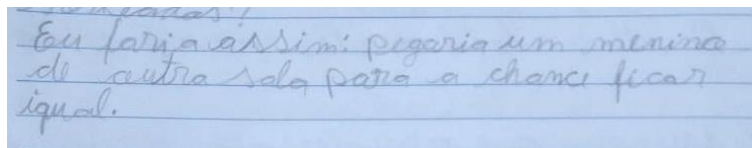 Eu faria assim: pegaria um menino
de outra sala para a chance ficar
igual.